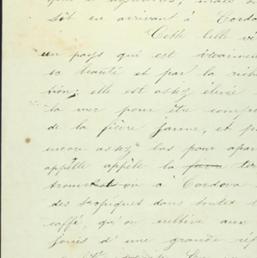 soit en arrivant à Cordo
Cette belle vi
un pays qui est vraimen
sa beauté et par la rich
tion; elle est assez élevée
la mer pour être comp
de la fièvre jaune, et p
encore assez bas pour apa
appelle appelle la ter
on à Cordova
des tropiques dans toutes l
caffé, qu'on cultive aux
jouis d'une grande ré